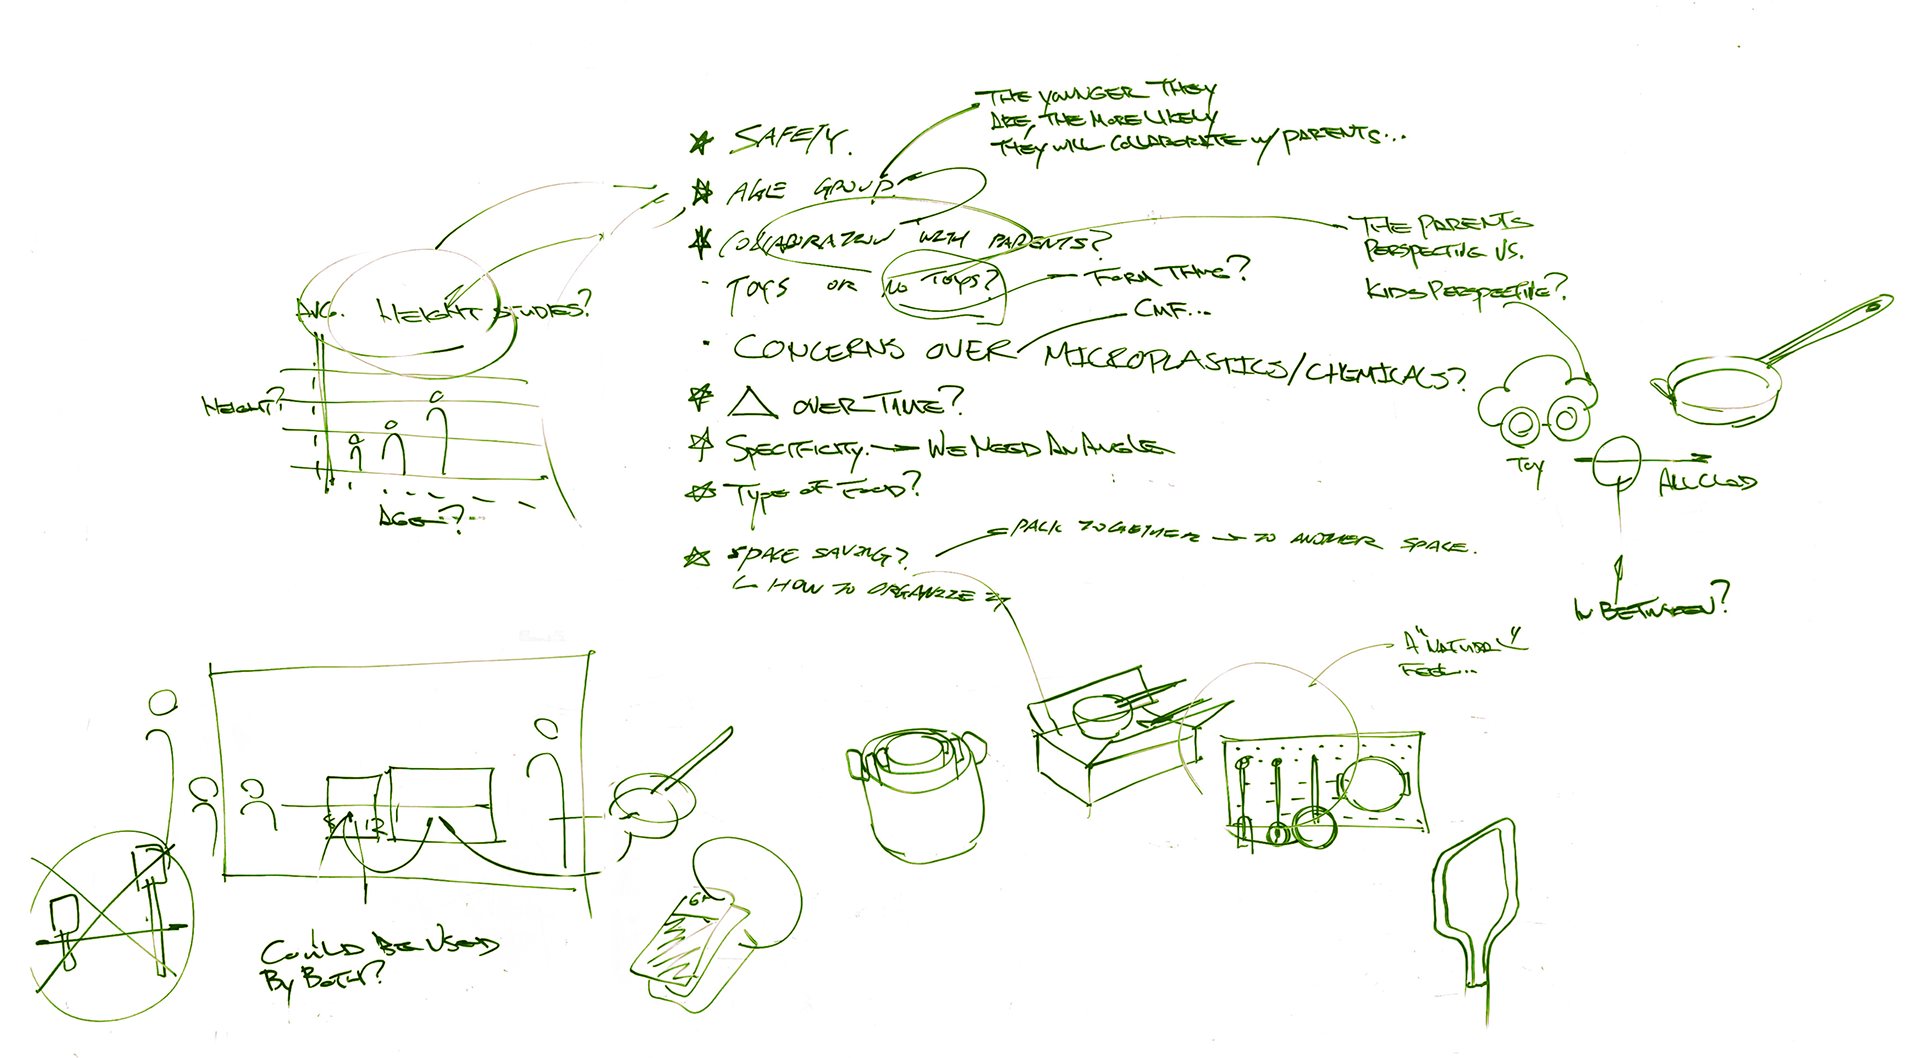 THE YOUNGER THEY
ARE, THE MORE LIKELY
THEY WILL COLLABORATE W/ PARENTS...
SAFETY.
AGE GROUP.
COLLABORATION WITH PARENTS?
TOYS OR NO TOYS?
FORM THING?
CMF...
CONCERNS OVER MICROPLASTICS/CHEMICALS?
△ OVER TIME?
SPECIFICITY. → WE NEED AN ANGLE
TYPE OF FOOD?
SPACE SAVING?
↳ HOW TO ORGANIZE
PACK TOGETHER → TO ANOTHER SPACE.
THE PARENTS
PERSPECTIVE VS.
KIDS PERSPECTIVE?
TOY
ALLCLAD
IN BETWEEN?
AVG. HEIGHT STUDIES?
HEIGHT?
AGE?
A "NATURAL"
FEEL...
12
COULD BE USED
BY BOTH?